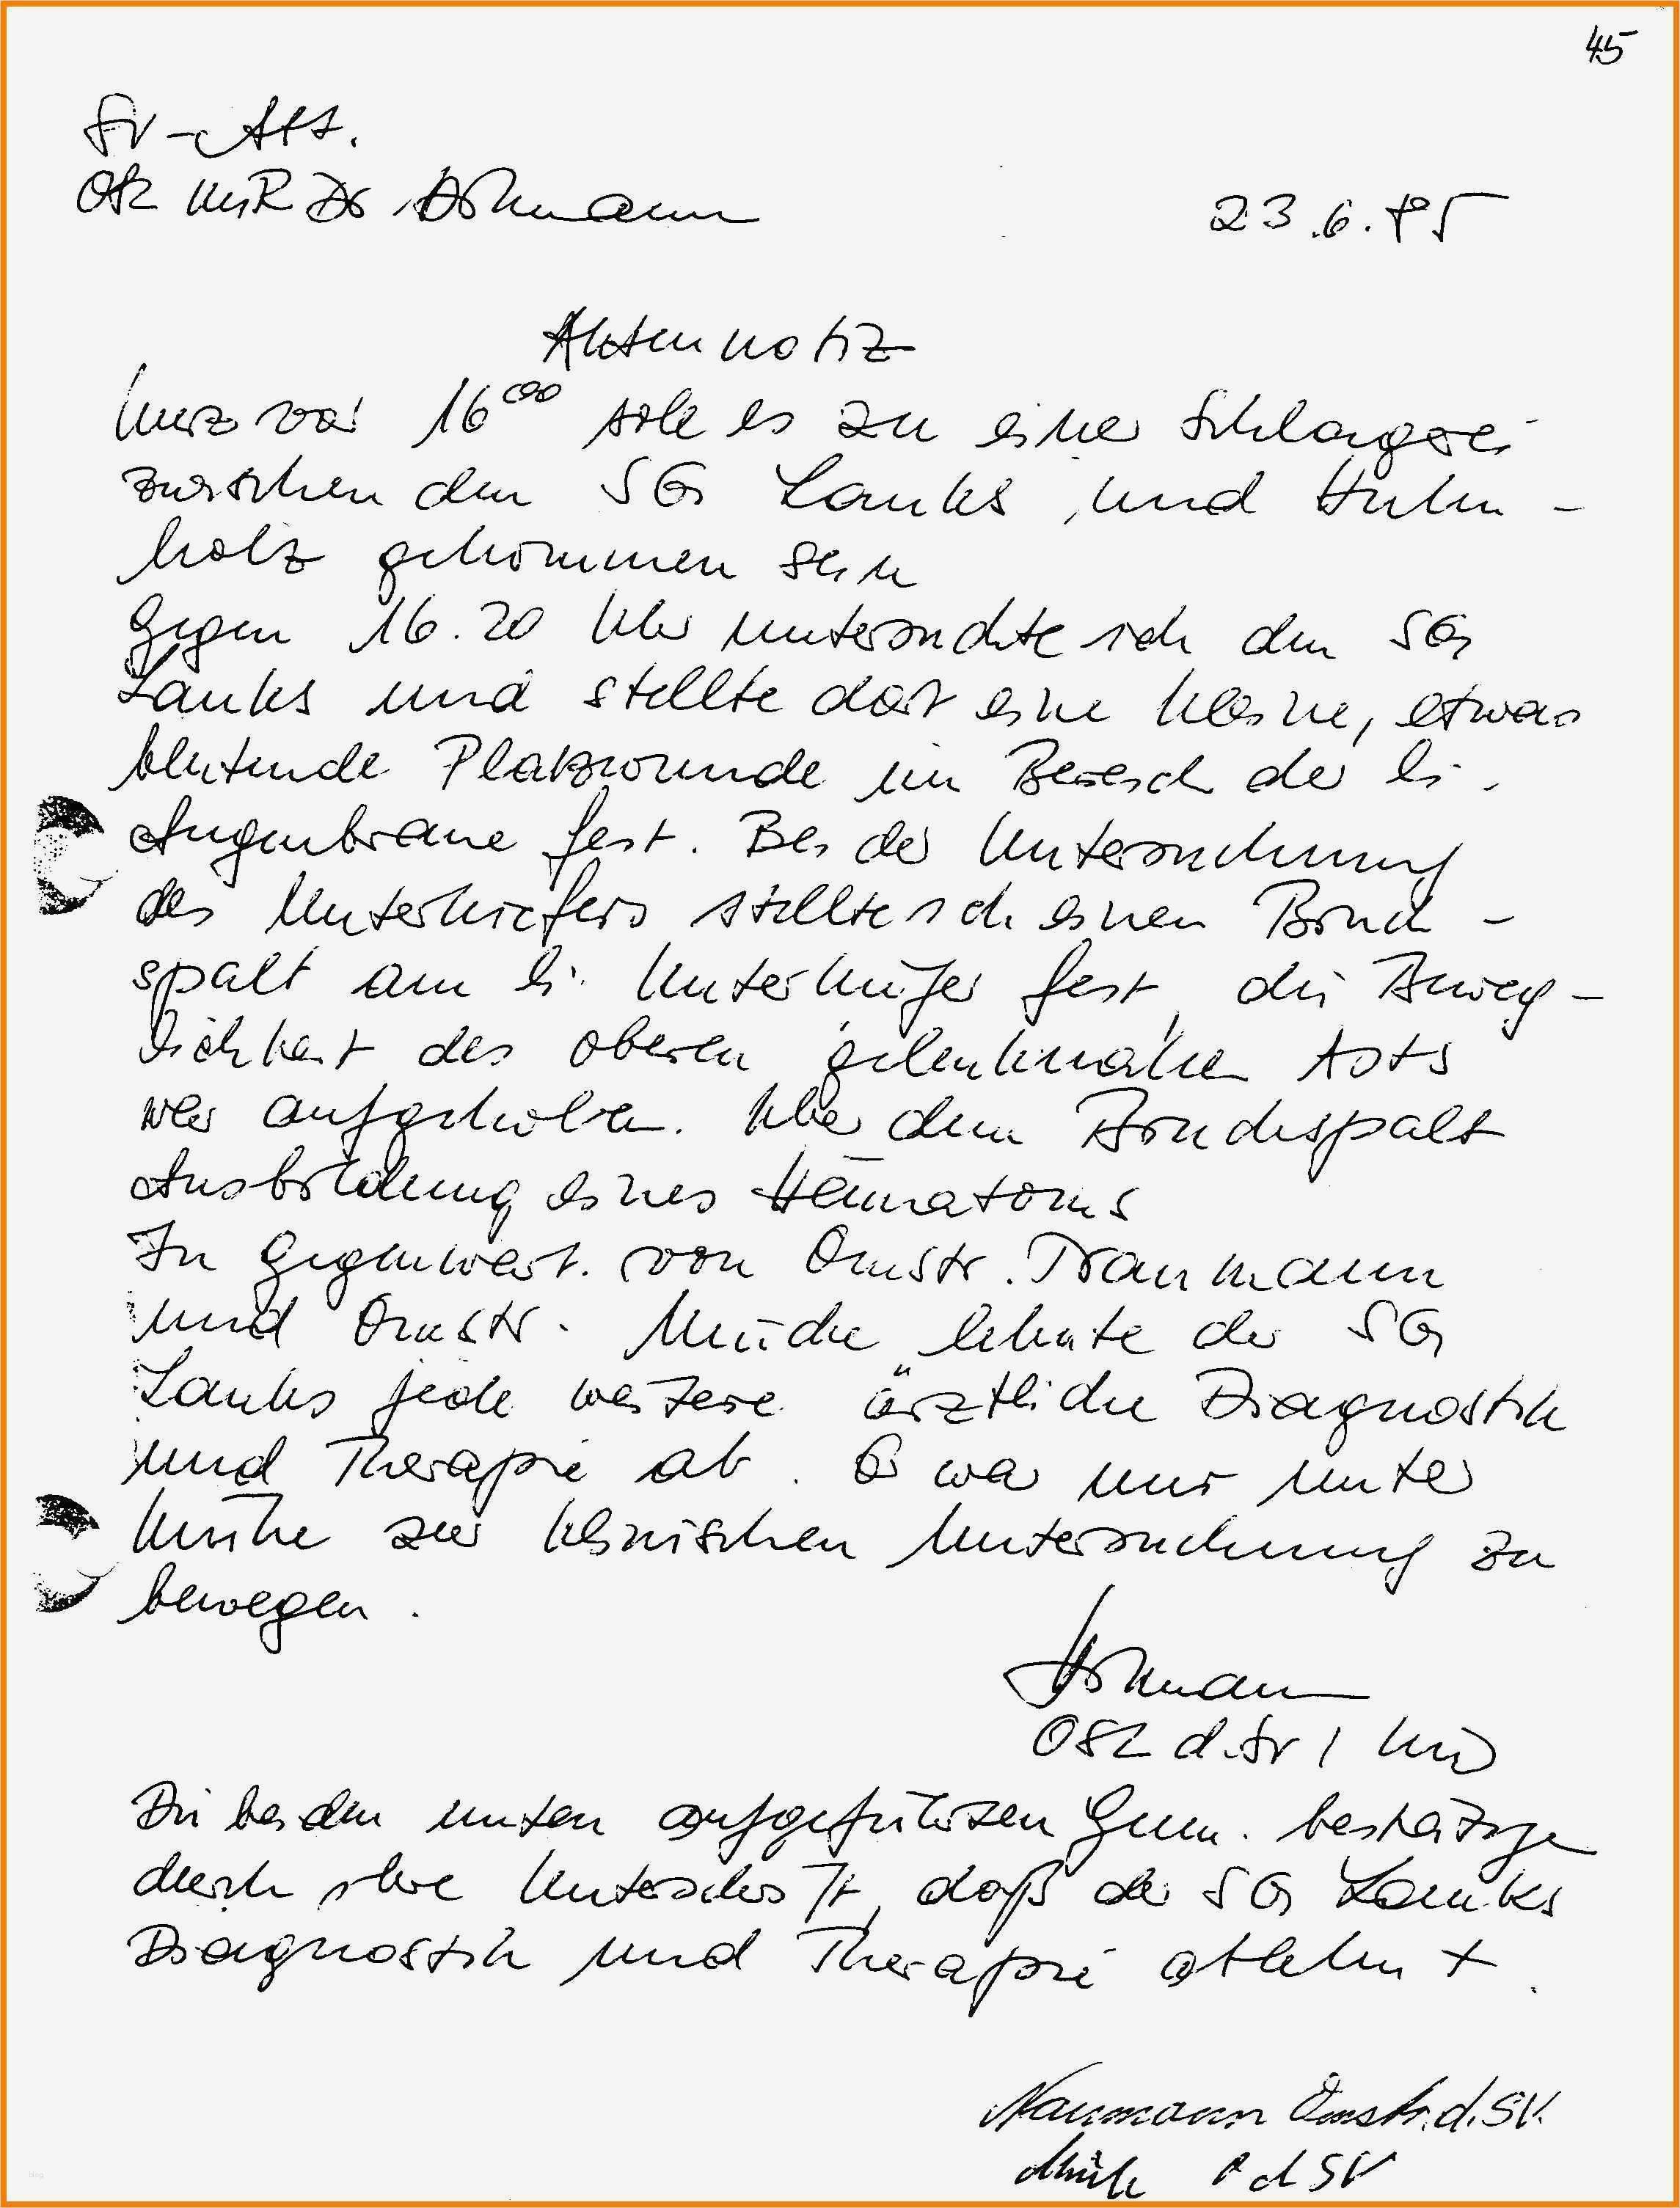 45
SV-Abt.
OSL MR Dr
23.6.85
Aktennotiz
Kurz vor 16⁰⁰ soll es zu einer Schlägerei
zwischen den SG Lauks und Huhn-
holz gekommen sein
Gegen 16.20 Uhr untersuchte ich den SG
Lauks und stellte dort eine kleine, etwas
blutende Platzwunde im Bereich der li.
Augenbraue fest. Bei der Untersuchung
des Unterkiefers stellte ich einen Bruch-
spalt am li. Unterkiefer fest, die Beweg-
lichkeit des oberen gelenknahen Asts
war aufgehoben. Über dem Bruchspalt
Ausbildung eines Hämatoms
In Gegenwart von Omstr. Naumann
und Omstr. Mücke lehnte der SG
Lauks jede weitere ärztliche Diagnostik
und Therapie ab. Er war nur unter
Mühe zur klinischen Untersuchung zu
bewegen.
OSL d. SV / MD
Die beiden unten aufgeführten Genn. bestätigen
durch ihre Unterschrift, daß der SG Lauks
Diagnostik und Therapie ablehnt.
Naumann Omstr. d. SV.
Mücke d SV